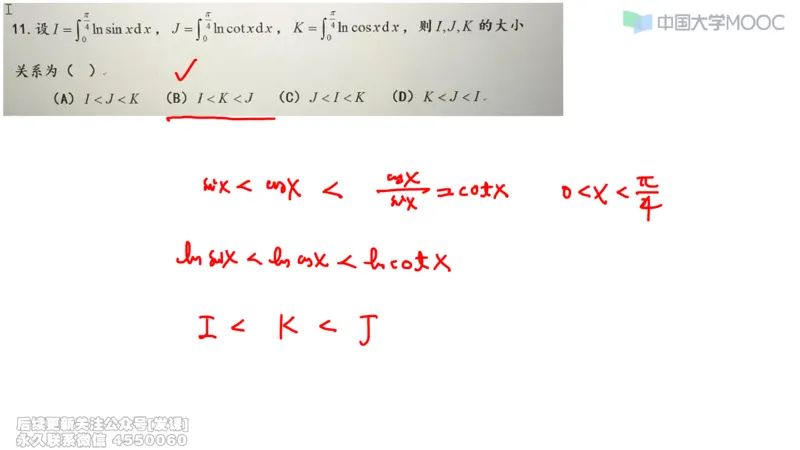 中国大学MOOC
11. 设 I = ∫₀^{π/4} ln sin x dx , J = ∫₀^{π/4} ln cot x dx , K = ∫₀^{π/4} ln cos x dx , 则 I, J, K 的大小
关系为（ ）.
(A) I < J < K (B) I < K < J (C) J < I < K (D) K < J < I .
sinx < cosx < cosx/sinx = cotx 0 < x < π/4
ln sinx < ln cosx < ln cotx
I < K < J
后续更新关注公众号[发课]
永久联系微信 4550060